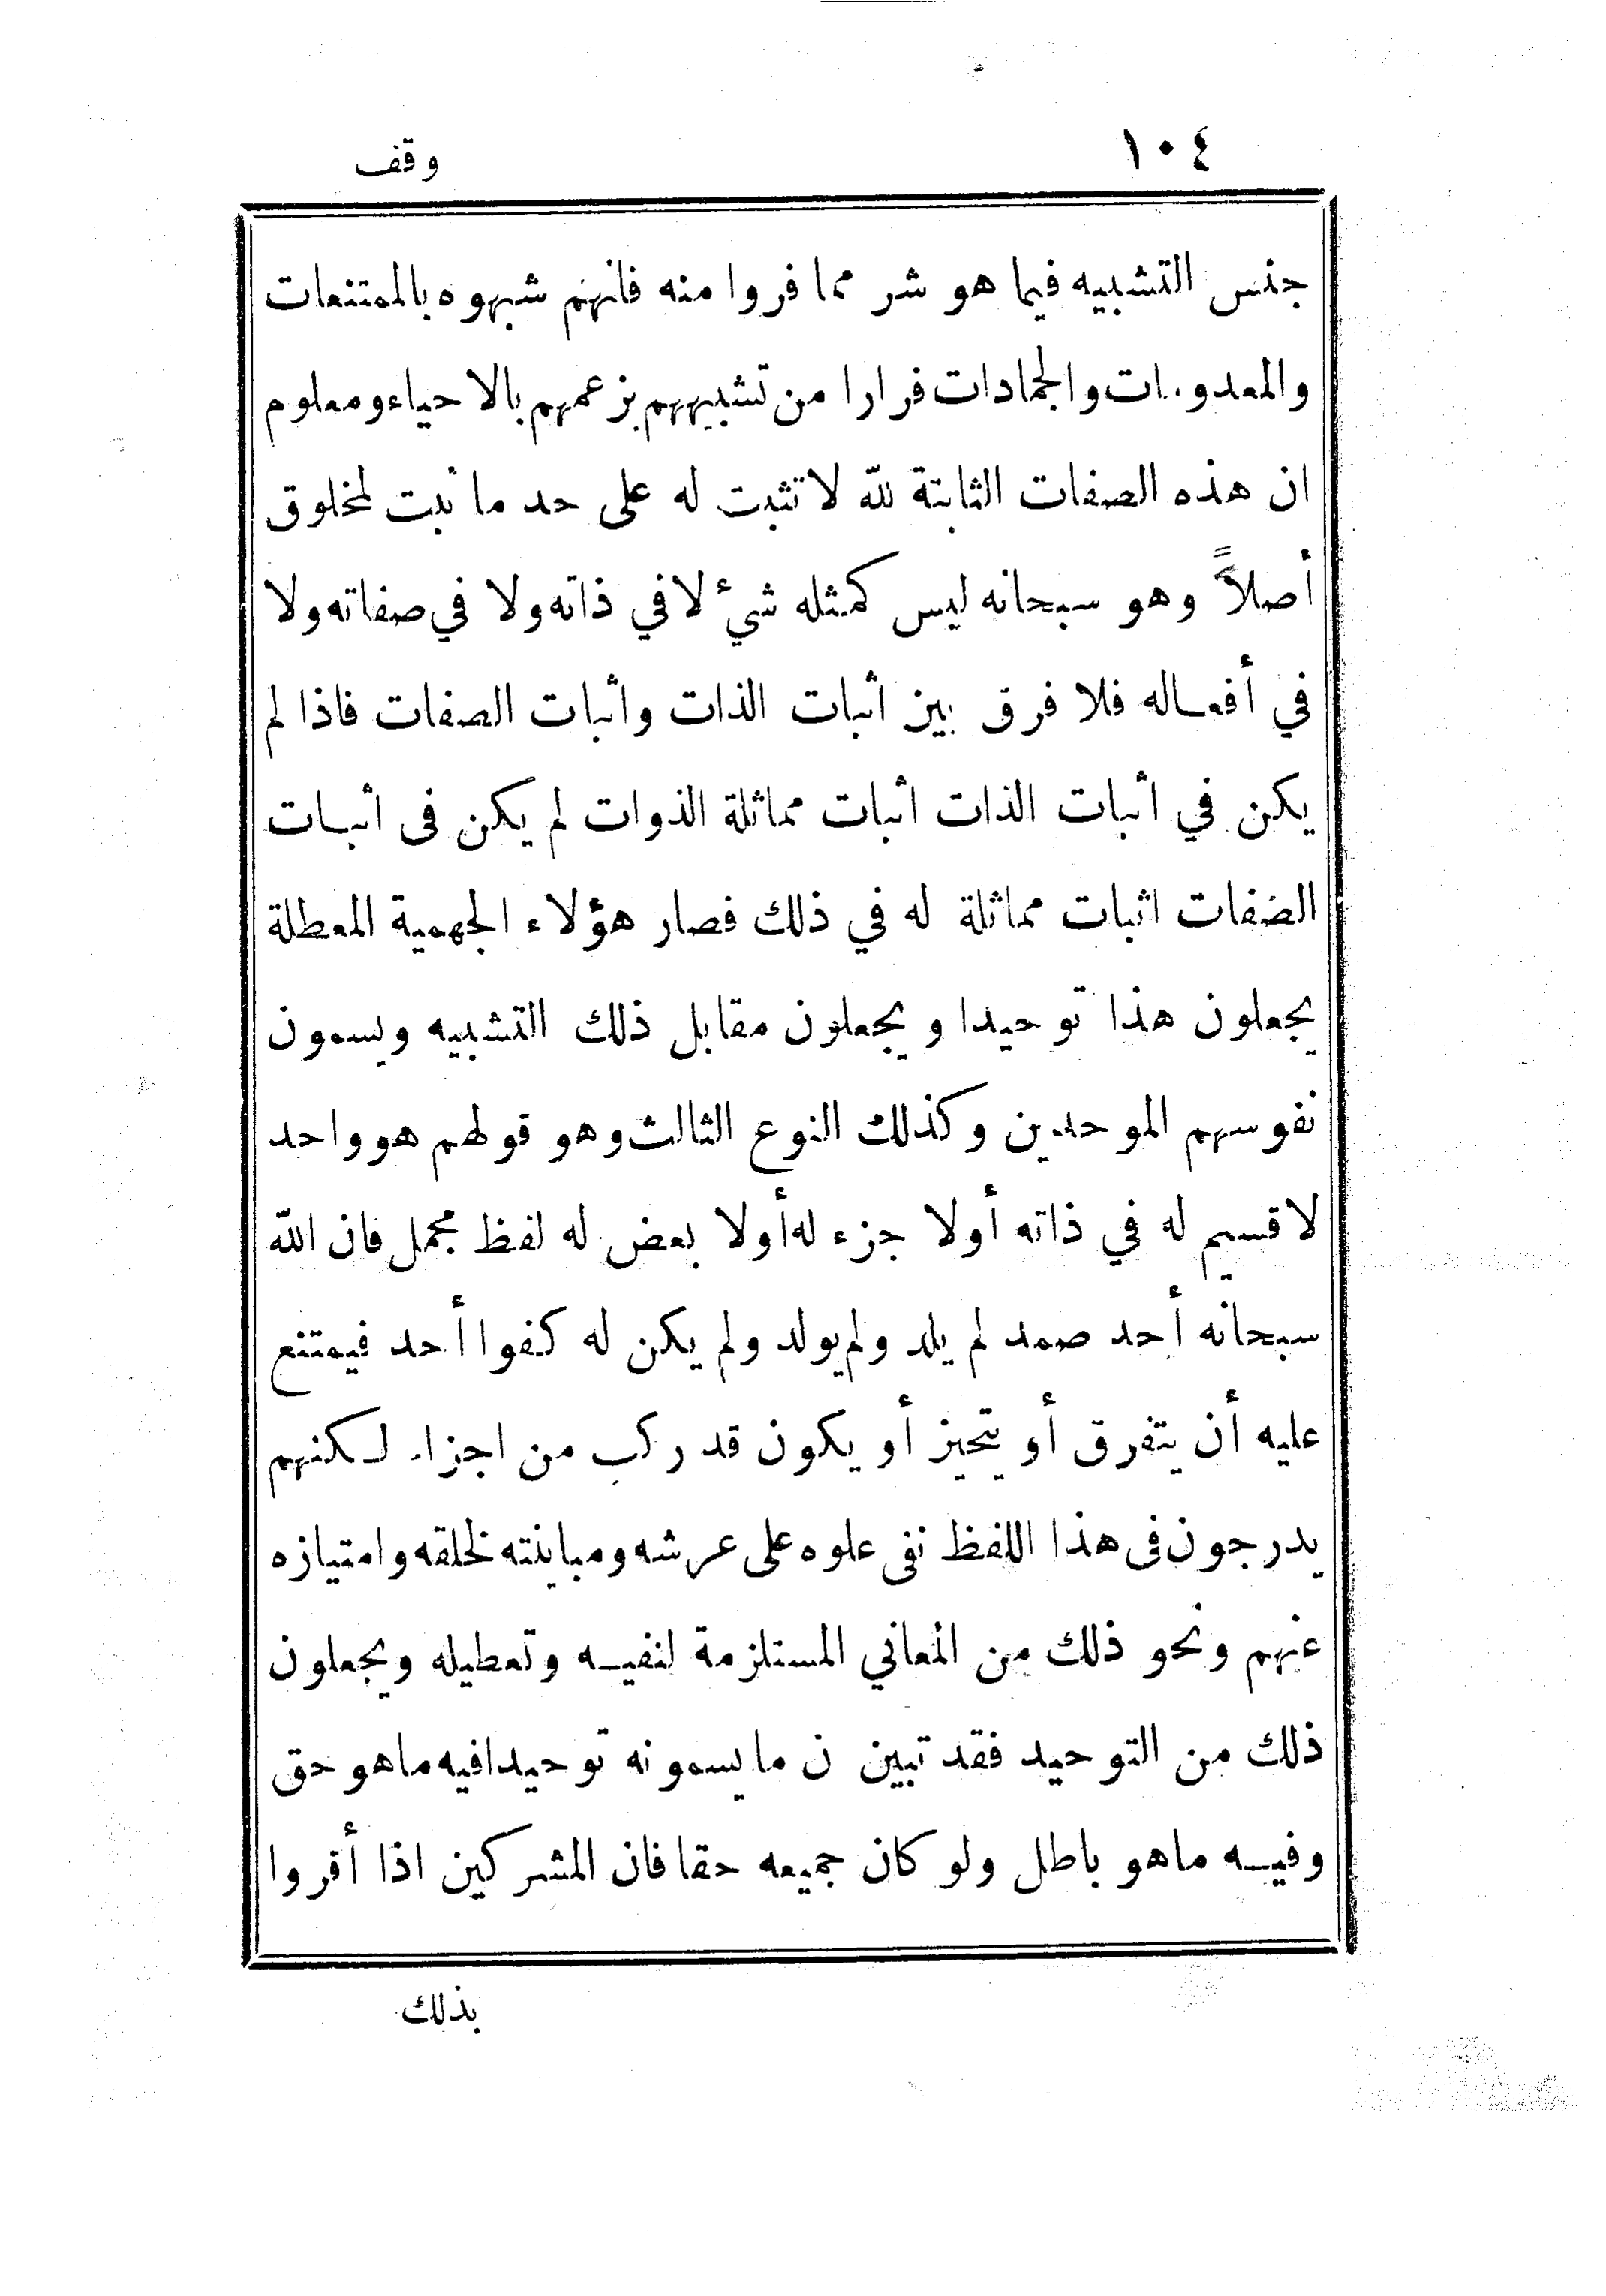 ١٠٤
وقف
جنس التشبيه فيما هو شر مما فروا منه فانهم شبهوه بالممتنعات
والمعدومات والجمادات فرارا من تشبيههم بزعمهم بالاحياء ومعلوم
ان هذه الصفات الثابتة لله لا تثبت له على حد ما ثبت لمخلوق
أصلاً وهو سبحانه ليس كمثله شيء لا في ذاته ولا في صفاته ولا
في أفعاله فلا فرق بين اثبات الذات واثبات الصفات فاذا لم
يكن في اثبات الذات اثبات مماثلة الذوات لم يكن فى اثبات
الصفات اثبات مماثلة له في ذلك فصار هؤلاء الجهمية المعطلة
يجعلون هذا توحيدا ويجعلون مقابل ذلك التشبيه ويسمون
نفوسهم الموحدين وكذلك النوع الثالث وهو قولهم هو واحد
لا قسيم له في ذاته أولا جزء له أولا بعض له لفظ مجمل فان الله
سبحانه أحد صمد لم يلد ولم يولد ولم يكن له كفوا أحد فيمتنع
عليه أن يتفرق أو يتحيز أو يكون قد ركب من اجزاء لكنهم
يدرجون فى هذا اللفظ نفى علوه على عرشه ومباينته لخلقه وامتيازه
عنهم ونحو ذلك من المعاني المستلزمة لنفيه وتعطيله ويجعلون
ذلك من التوحيد فقد تبين ن ما يسمونه توحيدا فيه ما هو حق
وفيه ما هو باطل ولو كان جميعه حقا فان المشركين اذا أقروا
بذلك